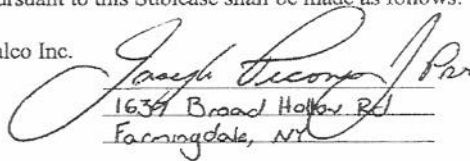 pursuant to this Sublease shall be made as follows:
alco Inc.
Joseph
1639 Broad Hollow Rd
Farmingdale, NY